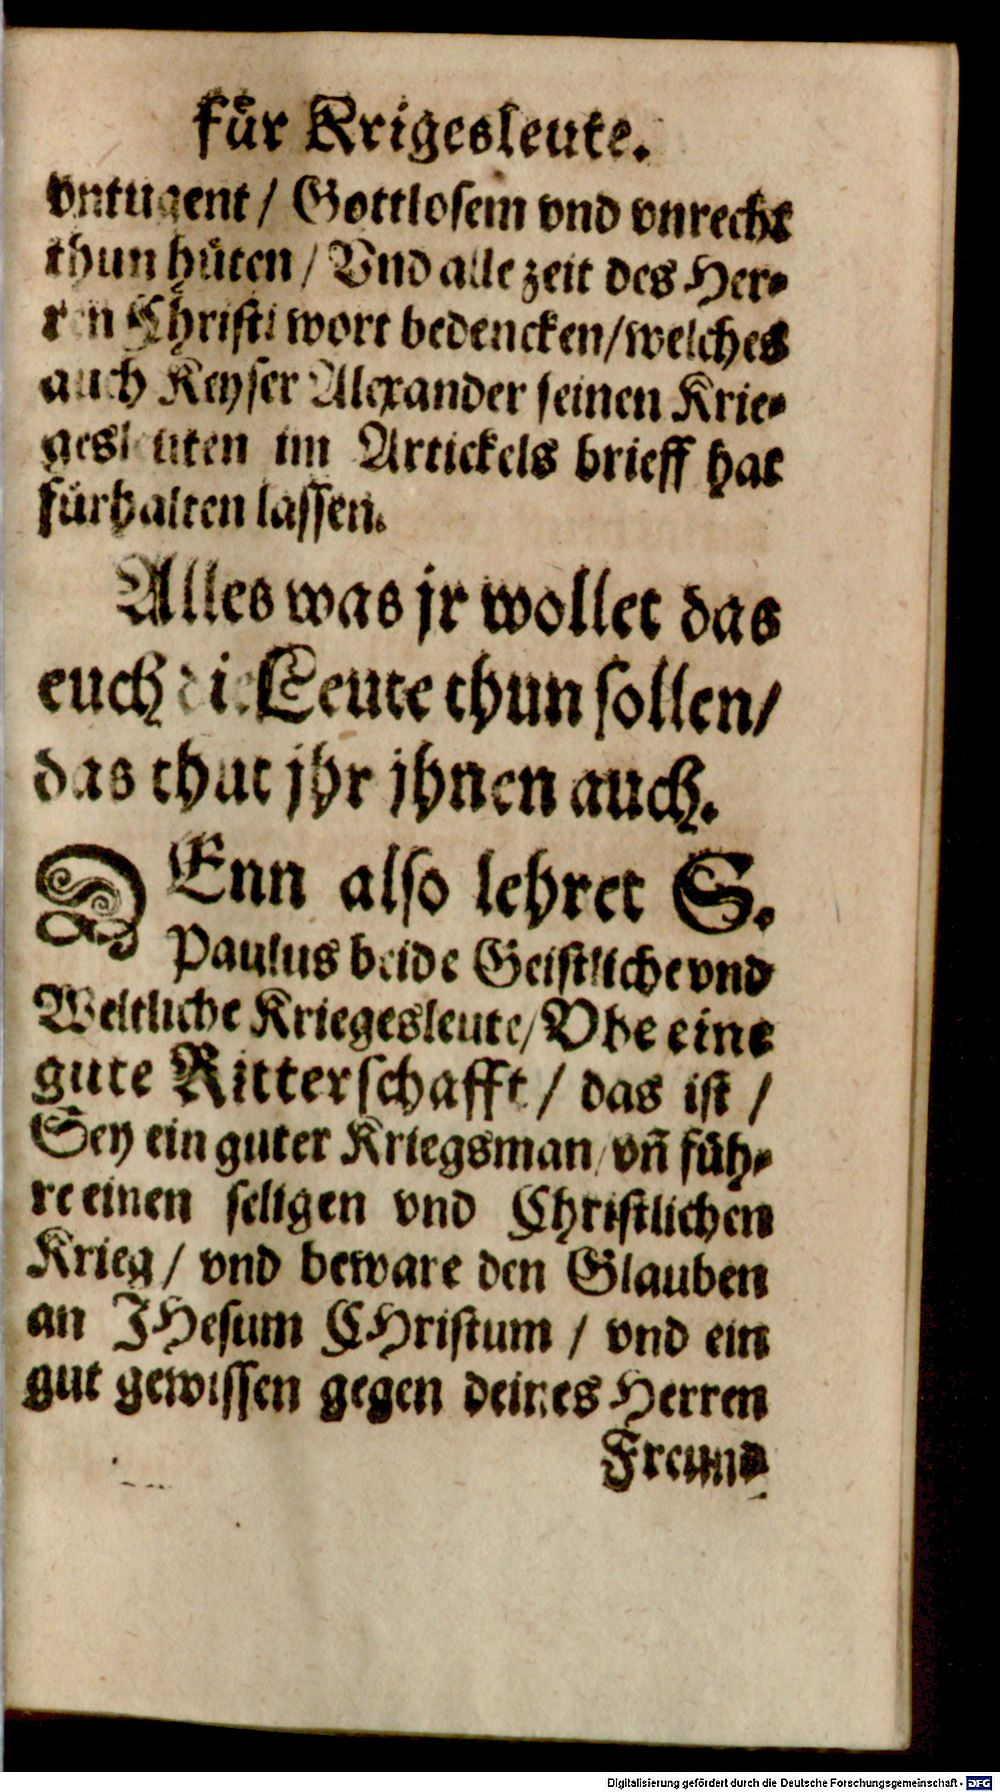 fuͤr Krigesleute.
vntugent / Gottlosem vnd vnrecht
thun huͤten / Vnd alle zeit des Her⸗
ren Christi wort bedencken / welches
auch Keyser Alexander seinen Krie⸗
gesleuten im Artickels brieff hat
fuͤrhalten lassen.
Alles was jr wollet das
euch die Leute thun sollen /
das thut jhr jhnen auch.
DEnn also lehret S.
Paulus beide Geistliche vnd
Weltliche Kriegesleute / Vbe eine
gute Ritterschafft / das ist /
Sey ein guter Kriegsman / vn̄ fuͤh⸗
re einen seligen vnd Christlichen
Krieg / vnd beware den Glauben
an JHesum CHristum / vnd ein
gut gewissen gegen deines Herren
Freund
Digitalisierung gefördert durch die Deutsche Forschungsgemeinschaft - DFG